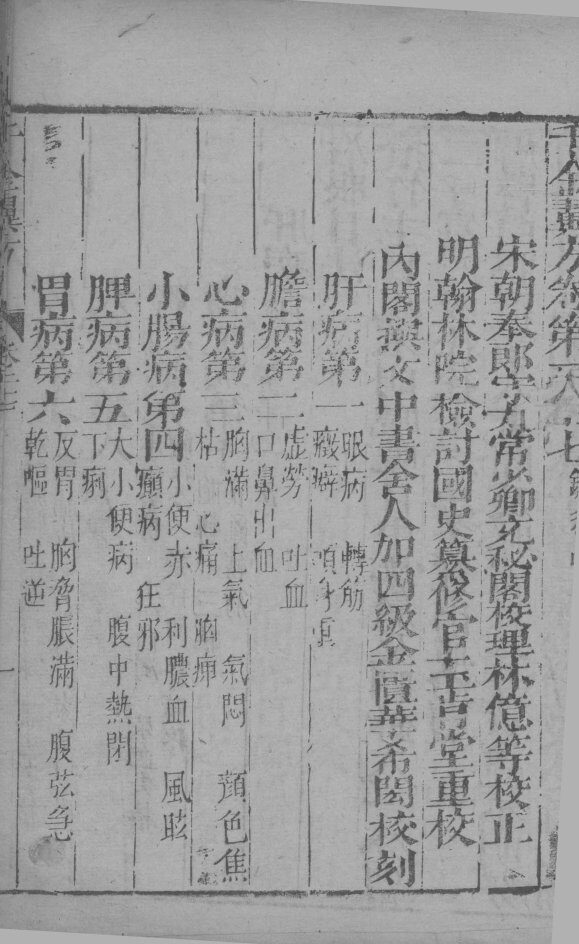 千金翼方卷第二十七
宋朝奉郎守太常少卿充秘閣校理林億等校正
明翰林院檢討國史纂修官王肯堂重校
內閣撰文中書舍人加四級金匱華希閎校刻
肝病第一 眼病 轉筋
癥癖 頭身重
膽病第二 虛勞 吐血
口鼻出血
心病第三 胸滿 上氣 氣悶 顏色焦
枯 心痛 胸痹
小腸病第四 小便赤 利膿血 風眩
癲病 狂邪
脾病第五 大小便病 腹中熱閉
下痢
胃病第六 反胃 胸脅脹滿 腹弦急
乾嘔 吐逆
千金翼方
卷二十七
一